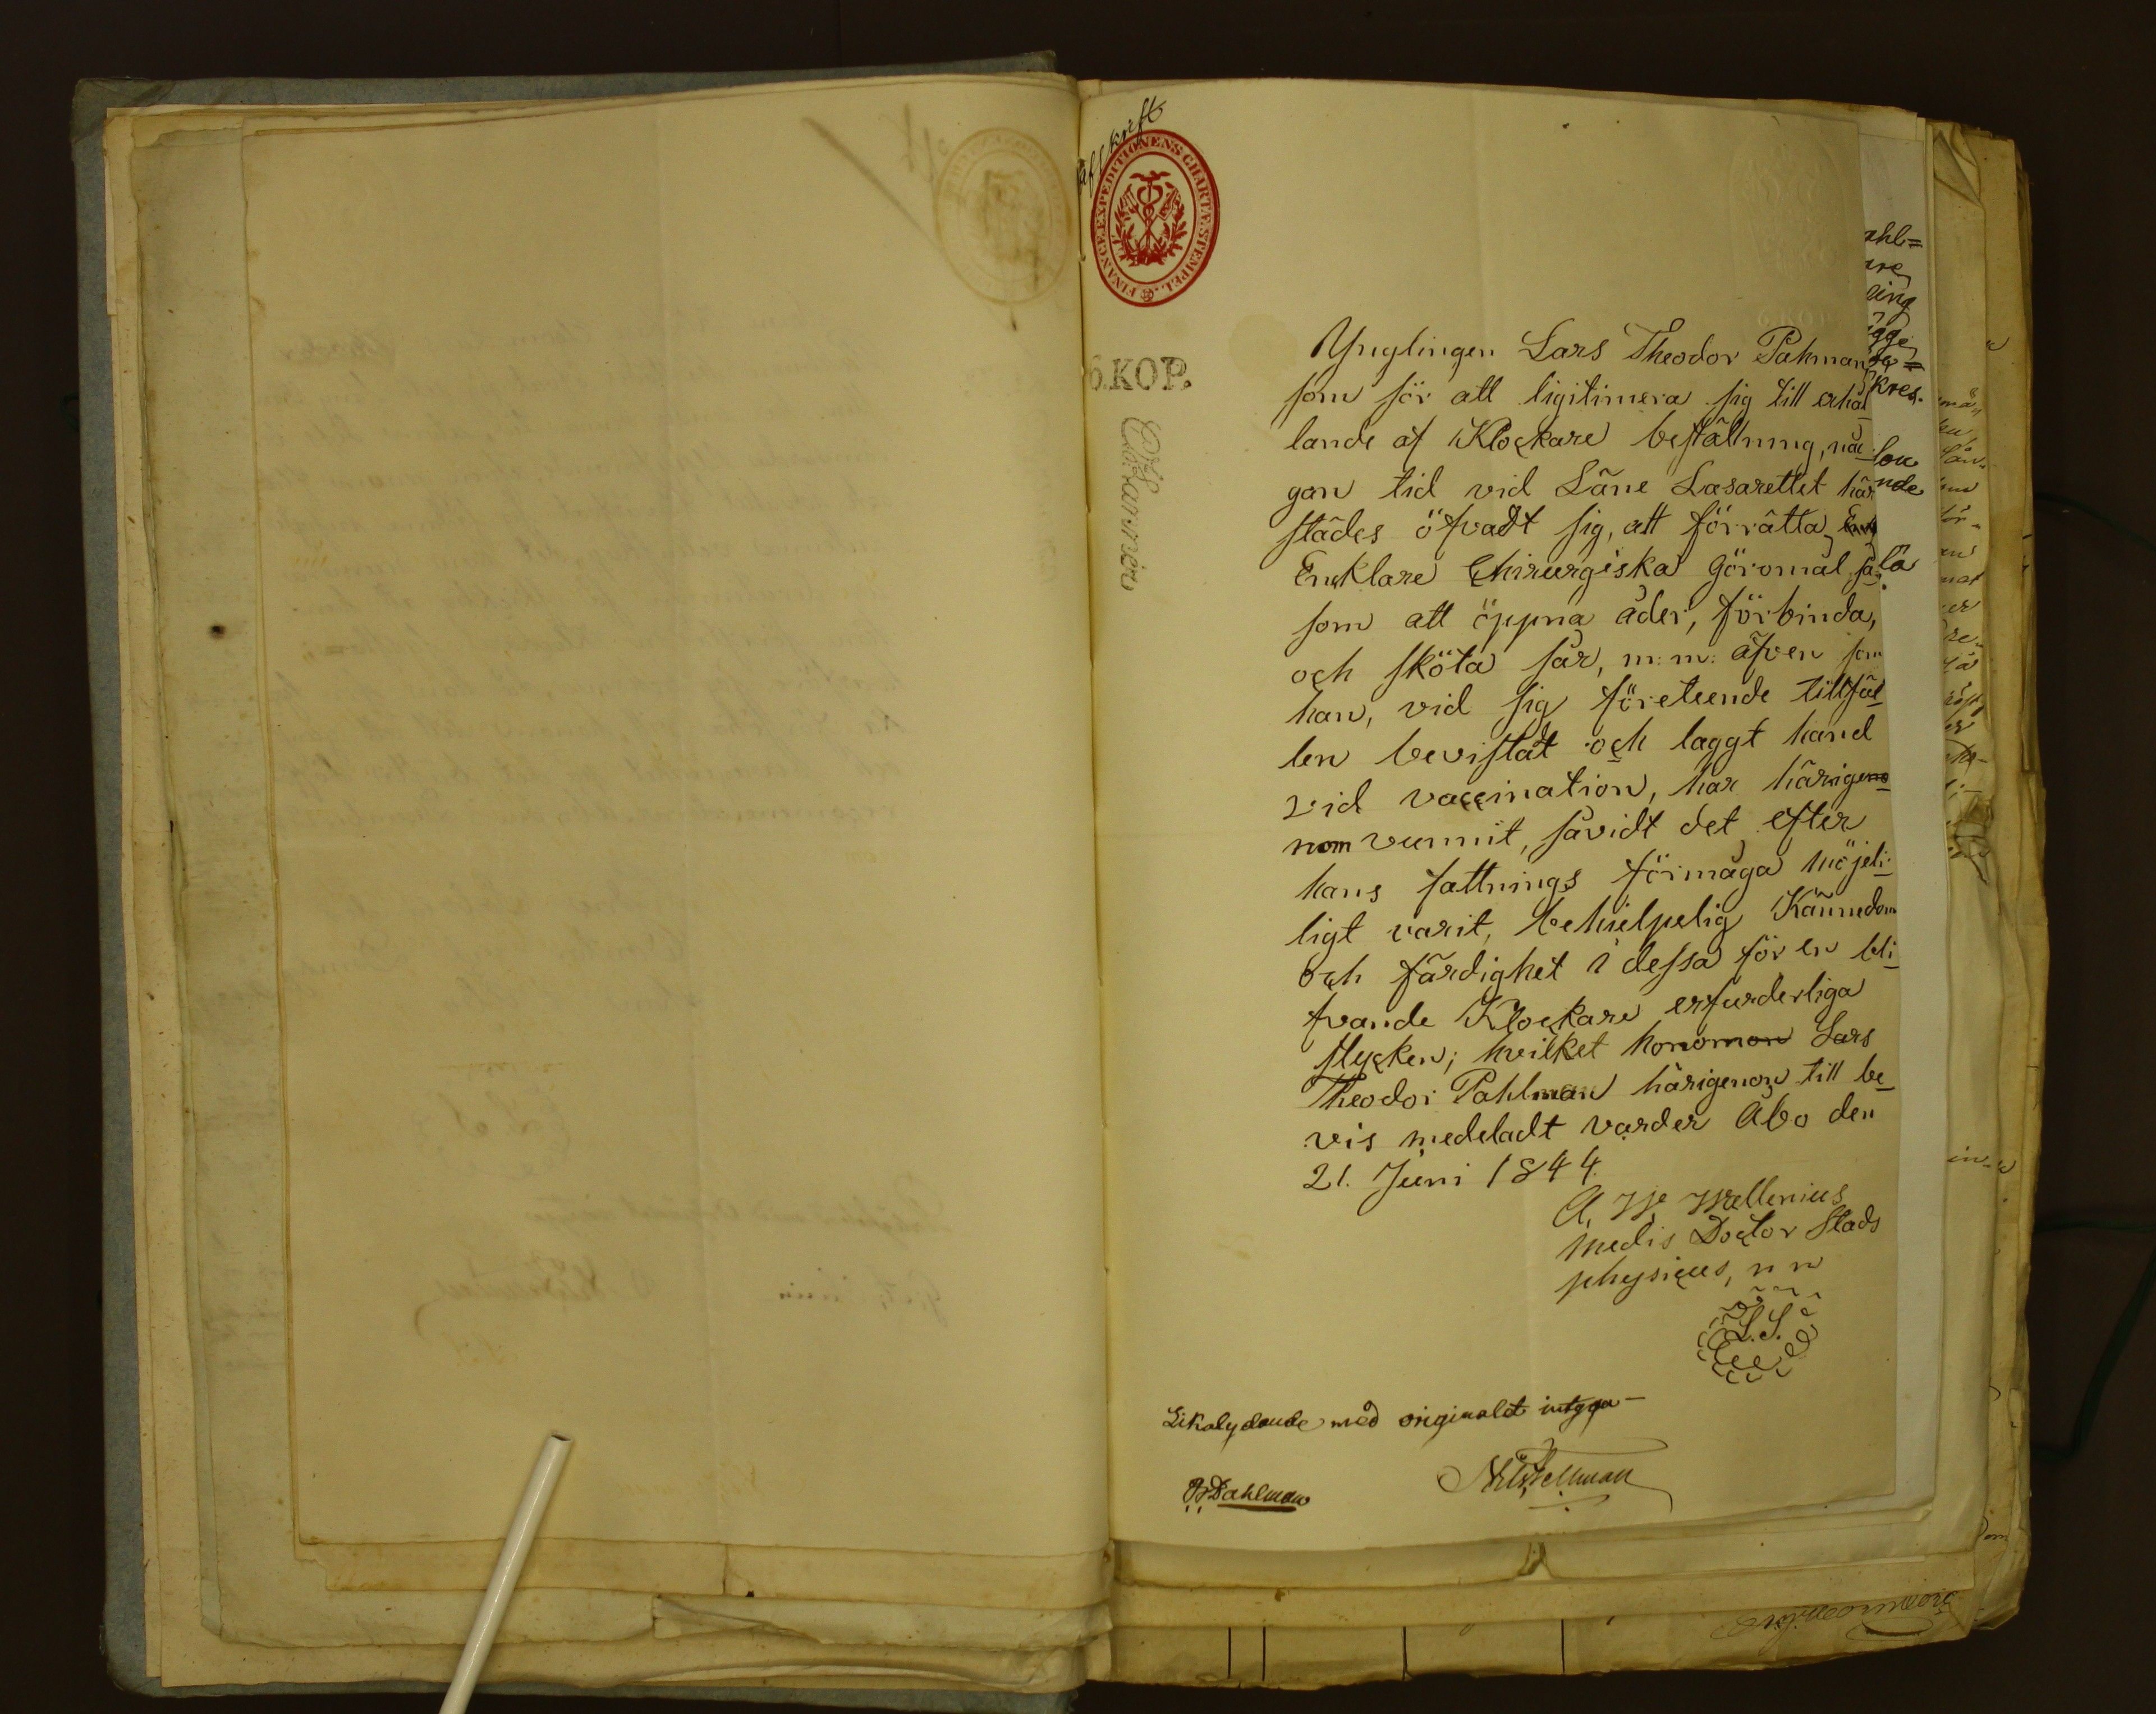 afskrift
FINANCE-EXPEDITIONENS CHARTÆ-STEMPEL
6.KOP.
Ynglingen Lars Theodor Pahman
som för att ligitimera sig till erhål
lande af Klockare beställning, nå
gon tid vid Läne Lasarettet här
städes öfvadt sig, att förrätta
Enklare Chirurgiska göromål så
som att öppna åder, förbinda,
och sköta sår, m:m: äfven som
han, vid sig företeende tillfäl
len bevistat och laggt hand
vid vaccination, har härige
nom vunnit, såvidt det efter
hans fattnings förmåga möjeli
ligt varit, behielpelig Kännedom
och färdighet i dessa för en bli
fvande Klockare erfurderliga
stycken; hvilket honom Lars
Theodor Pahlman härigenom till be
vis medeladt varder Åbo den
21. Juni 1844
Medis Doctor Stads
physicus, m m
L.S.
Likalydande med originalet intyga
Pahlman
ahl=
are
ring
kres.
nde